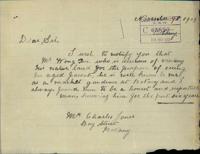 Dear Sir
I wish to notify you that
Mr Wong Du who is desirous of visiting
his native land for the purpose of seeing
his aged parent, he is well known to me
as a market gardener at Botany and I
always found him to be a honest and respectable
man knowing him for the past six years
Mr Charles Jones
Bay Street
Botany